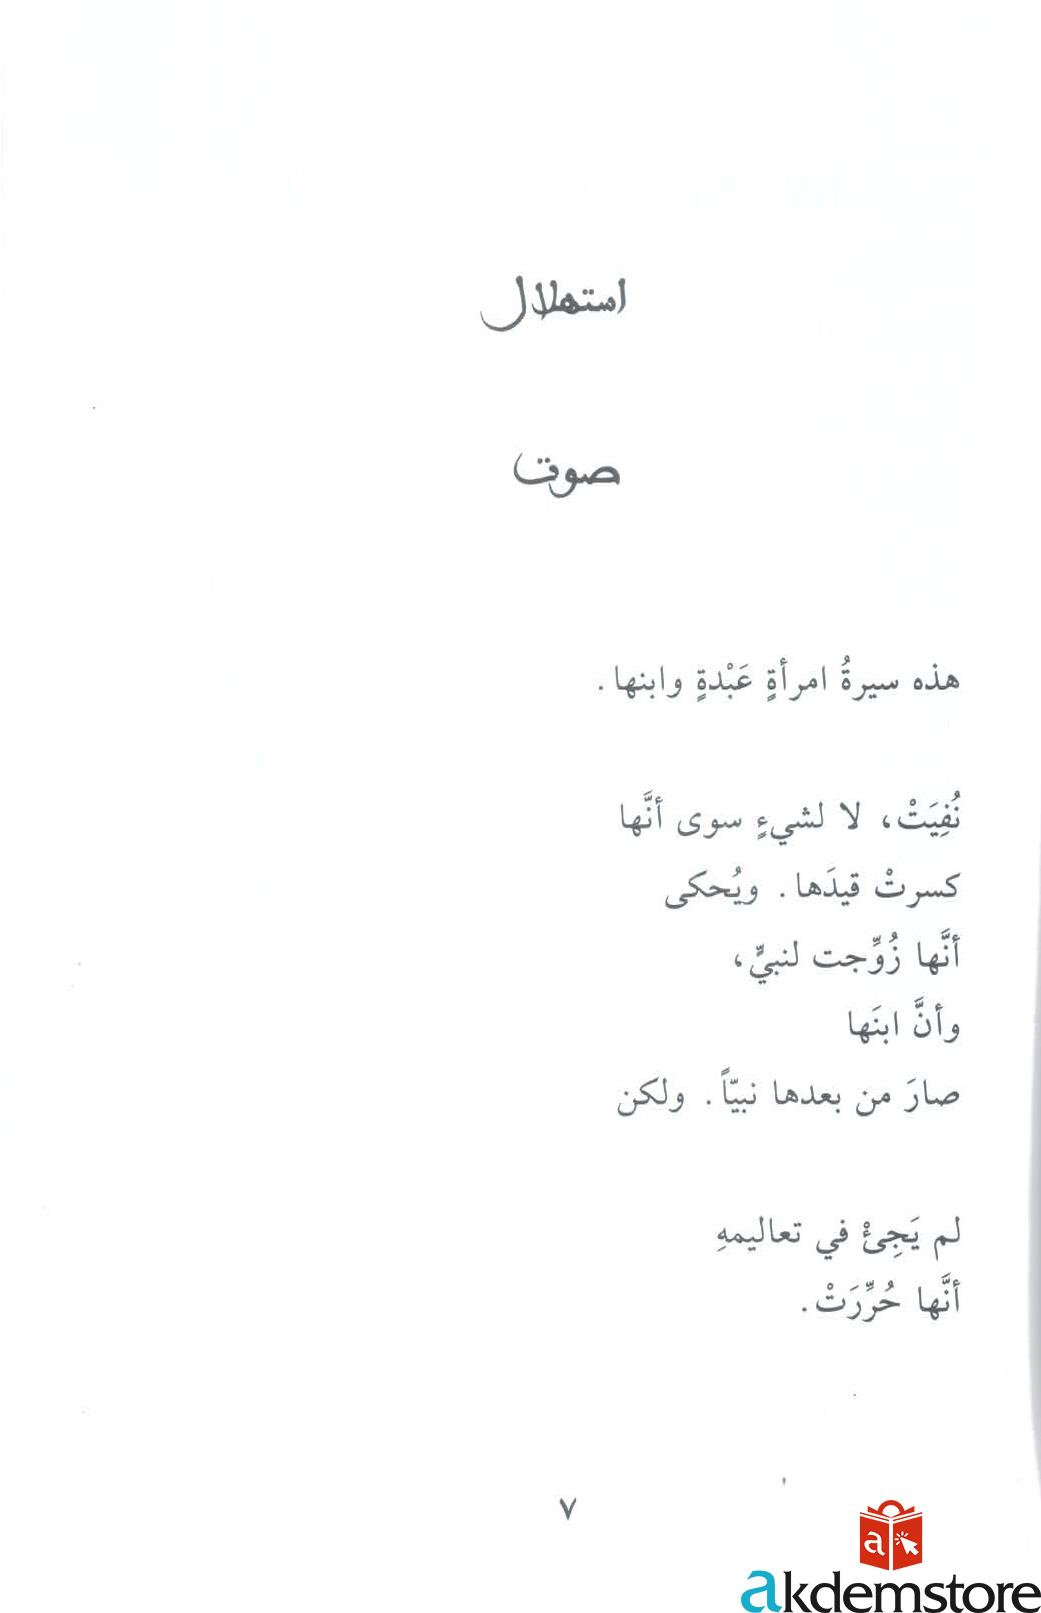 استهلال
صوت
هذه سيرةُ امرأةٍ عَبْدةٍ وابنها.
نُفِيَتْ، لا لشيءٍ سوى أنَّها
كسرتْ قيدَها. ويُحكى
أنَّها زُوِّجت لنبيٍّ،
وأنَّ ابنَها
صارَ من بعدها نبيّاً. ولكن
لم يَجِئْ في تعاليمهِ
أنَّها حُرِّرَتْ.
٧
a
akdemstore